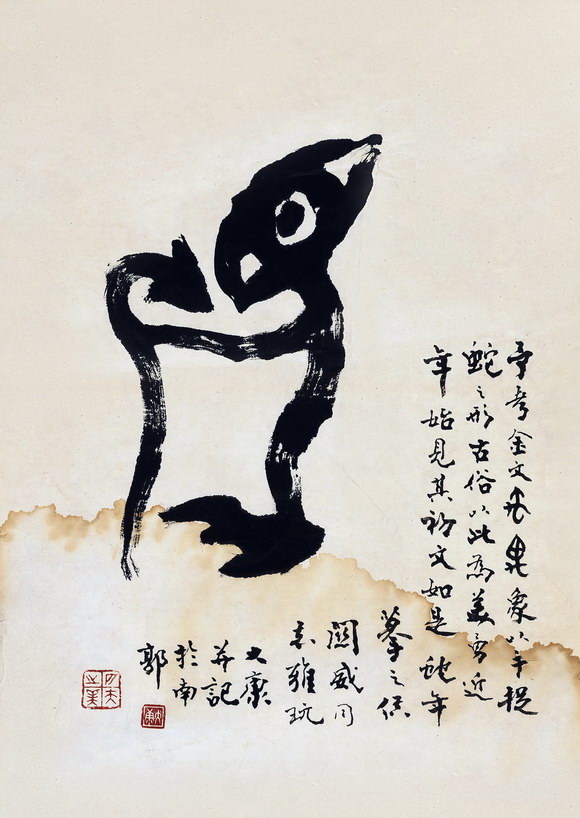 予考金文 象以手捉
蛇之形古俗以此為美 近
年始见其初文如是蛇年
摹之供
關威同
志雅玩
大康
并記
於南
郭